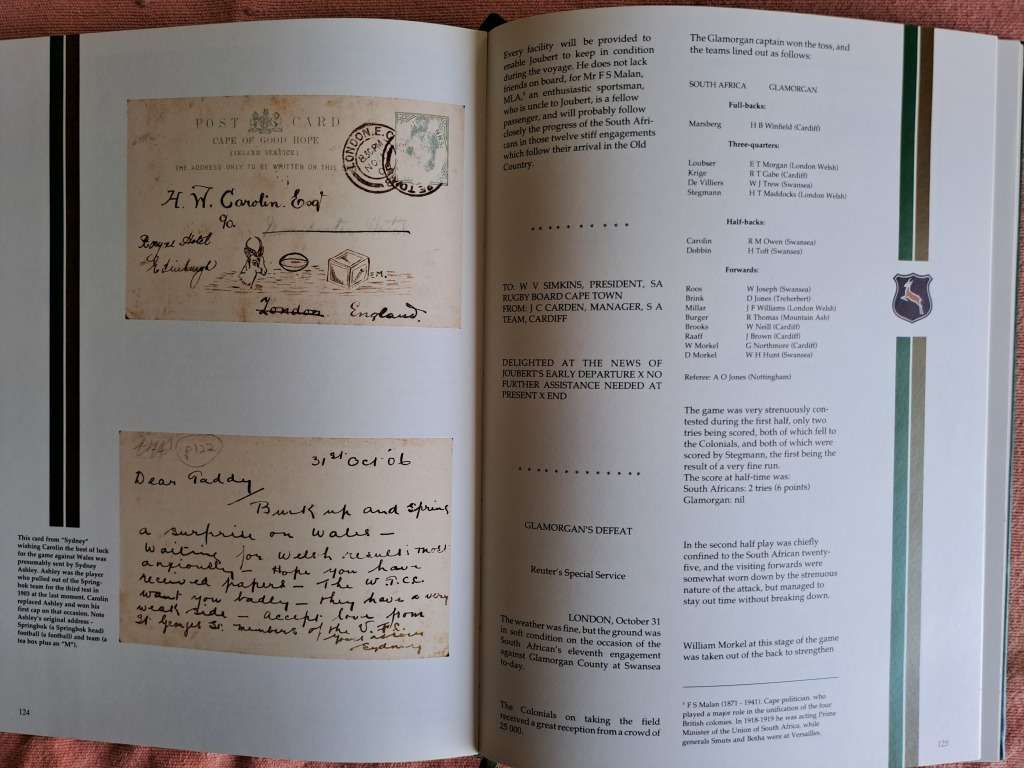 POST CARD
CAPE OF GOOD HOPE
(INLAND SERVICE)
THE ADDRESS ONLY TO BE WRITTEN ON THIS
LONDON.E.C
H. W. Carolin. Esqr
c/o
Royal Hotel
Edinburgh
E.M.
London England.
8122
31st Oct. 06
Dear Paddy
Buck up and spring
a surprise on Wales –
Waiting for Welsh results most
anxiously – Hope you have
received papers – The W.T.C.s
want you badly – they have a very
weak side – accept love from
St. Georges St. members of the
Yours
Sydney
This card from "Sydney"
wishing Carolin the best of luck
for the game against Wales was
presumably sent by Sydney
Ashley. Ashley was the player
who pulled out of the Spring-
bok team for the third test in
1903 at the last moment. Carolin
replaced Ashley and won his
first cap on that occasion. Note
Ashley's original address -
Springbok (a Springbok head)
football (a football) and team (a
tea box plus an "M").
124
Every facility will be provided to
enable Joubert to keep in condition
during the voyage. He does not lack
friends on board, for Mr F S Malan,
MLA,⁸ an enthusiastic sportsman,
who is uncle to Joubert, is a fellow
passenger, and will probably follow
closely the progress of the South Afri-
cans in those twelve stiff engagements
which follow their arrival in the Old
Country.
TO: W V SIMKINS, PRESIDENT, SA
RUGBY BOARD CAPE TOWN
FROM: J C CARDEN, MANAGER, S A
TEAM, CARDIFF
DELIGHTED AT THE NEWS OF
JOUBERT'S EARLY DEPARTURE X NO
FURTHER ASSISTANCE NEEDED AT
PRESENT X END
GLAMORGAN'S DEFEAT
Reuter's Special Service
LONDON, October 31
The weather was fine, but the ground was
in soft condition on the occasion of the
South African's eleventh engagement
against Glamorgan County at Swansea
to-day.
The Colonials on taking the field
received a great reception from a crowd of
25 000.
The Glamorgan captain won the toss, and
the teams lined out as follows:
SOUTH AFRICA GLAMORGAN
Full-backs:
Marsberg H B Winfield (Cardiff)
Three-quarters:
Loubser E T Morgan (London Welsh)
Krige R T Gabe (Cardiff)
De Villiers W J Trew (Swansea)
Stegmann H T Maddocks (London Welsh)
Half-backs:
Carolin R M Owen (Swansea)
Dobbin H Toft (Swansea)
Forwards:
Roos W Joseph (Swansea)
Brink D Jones (Treherbert)
Millar J F Williams (London Welsh)
Burger R Thomas (Mountain Ash)
Brooks W Neill (Cardiff)
Raaff J Brown (Cardiff)
W Morkel G Northmore (Cardiff)
D Morkel W H Hunt (Swansea)
Referee: A O Jones (Nottingham)
The game was very strenuously con-
tested during the first half, only two
tries being scored, both of which fell to
the Colonials, and both of which were
scored by Stegmann, the first being the
result of a very fine run.
The score at half-time was:
South Africans: 2 tries (6 points)
Glamorgan: nil
In the second half play was chiefly
confined to the South African twenty-
five, and the visiting forwards were
somewhat worn down by the strenuous
nature of the attack, but managed to
stay out time without breaking down.
William Morkel at this stage of the game
was taken out of the back to strengthen
⁸ F S Malan (1871 - 1941). Cape politician, who
played a major role in the unification of the four
British colonies. In 1918-1919 he was acting Prime
Minister of the Union of South Africa, while
generals Smuts and Botha were at Versailles.
125